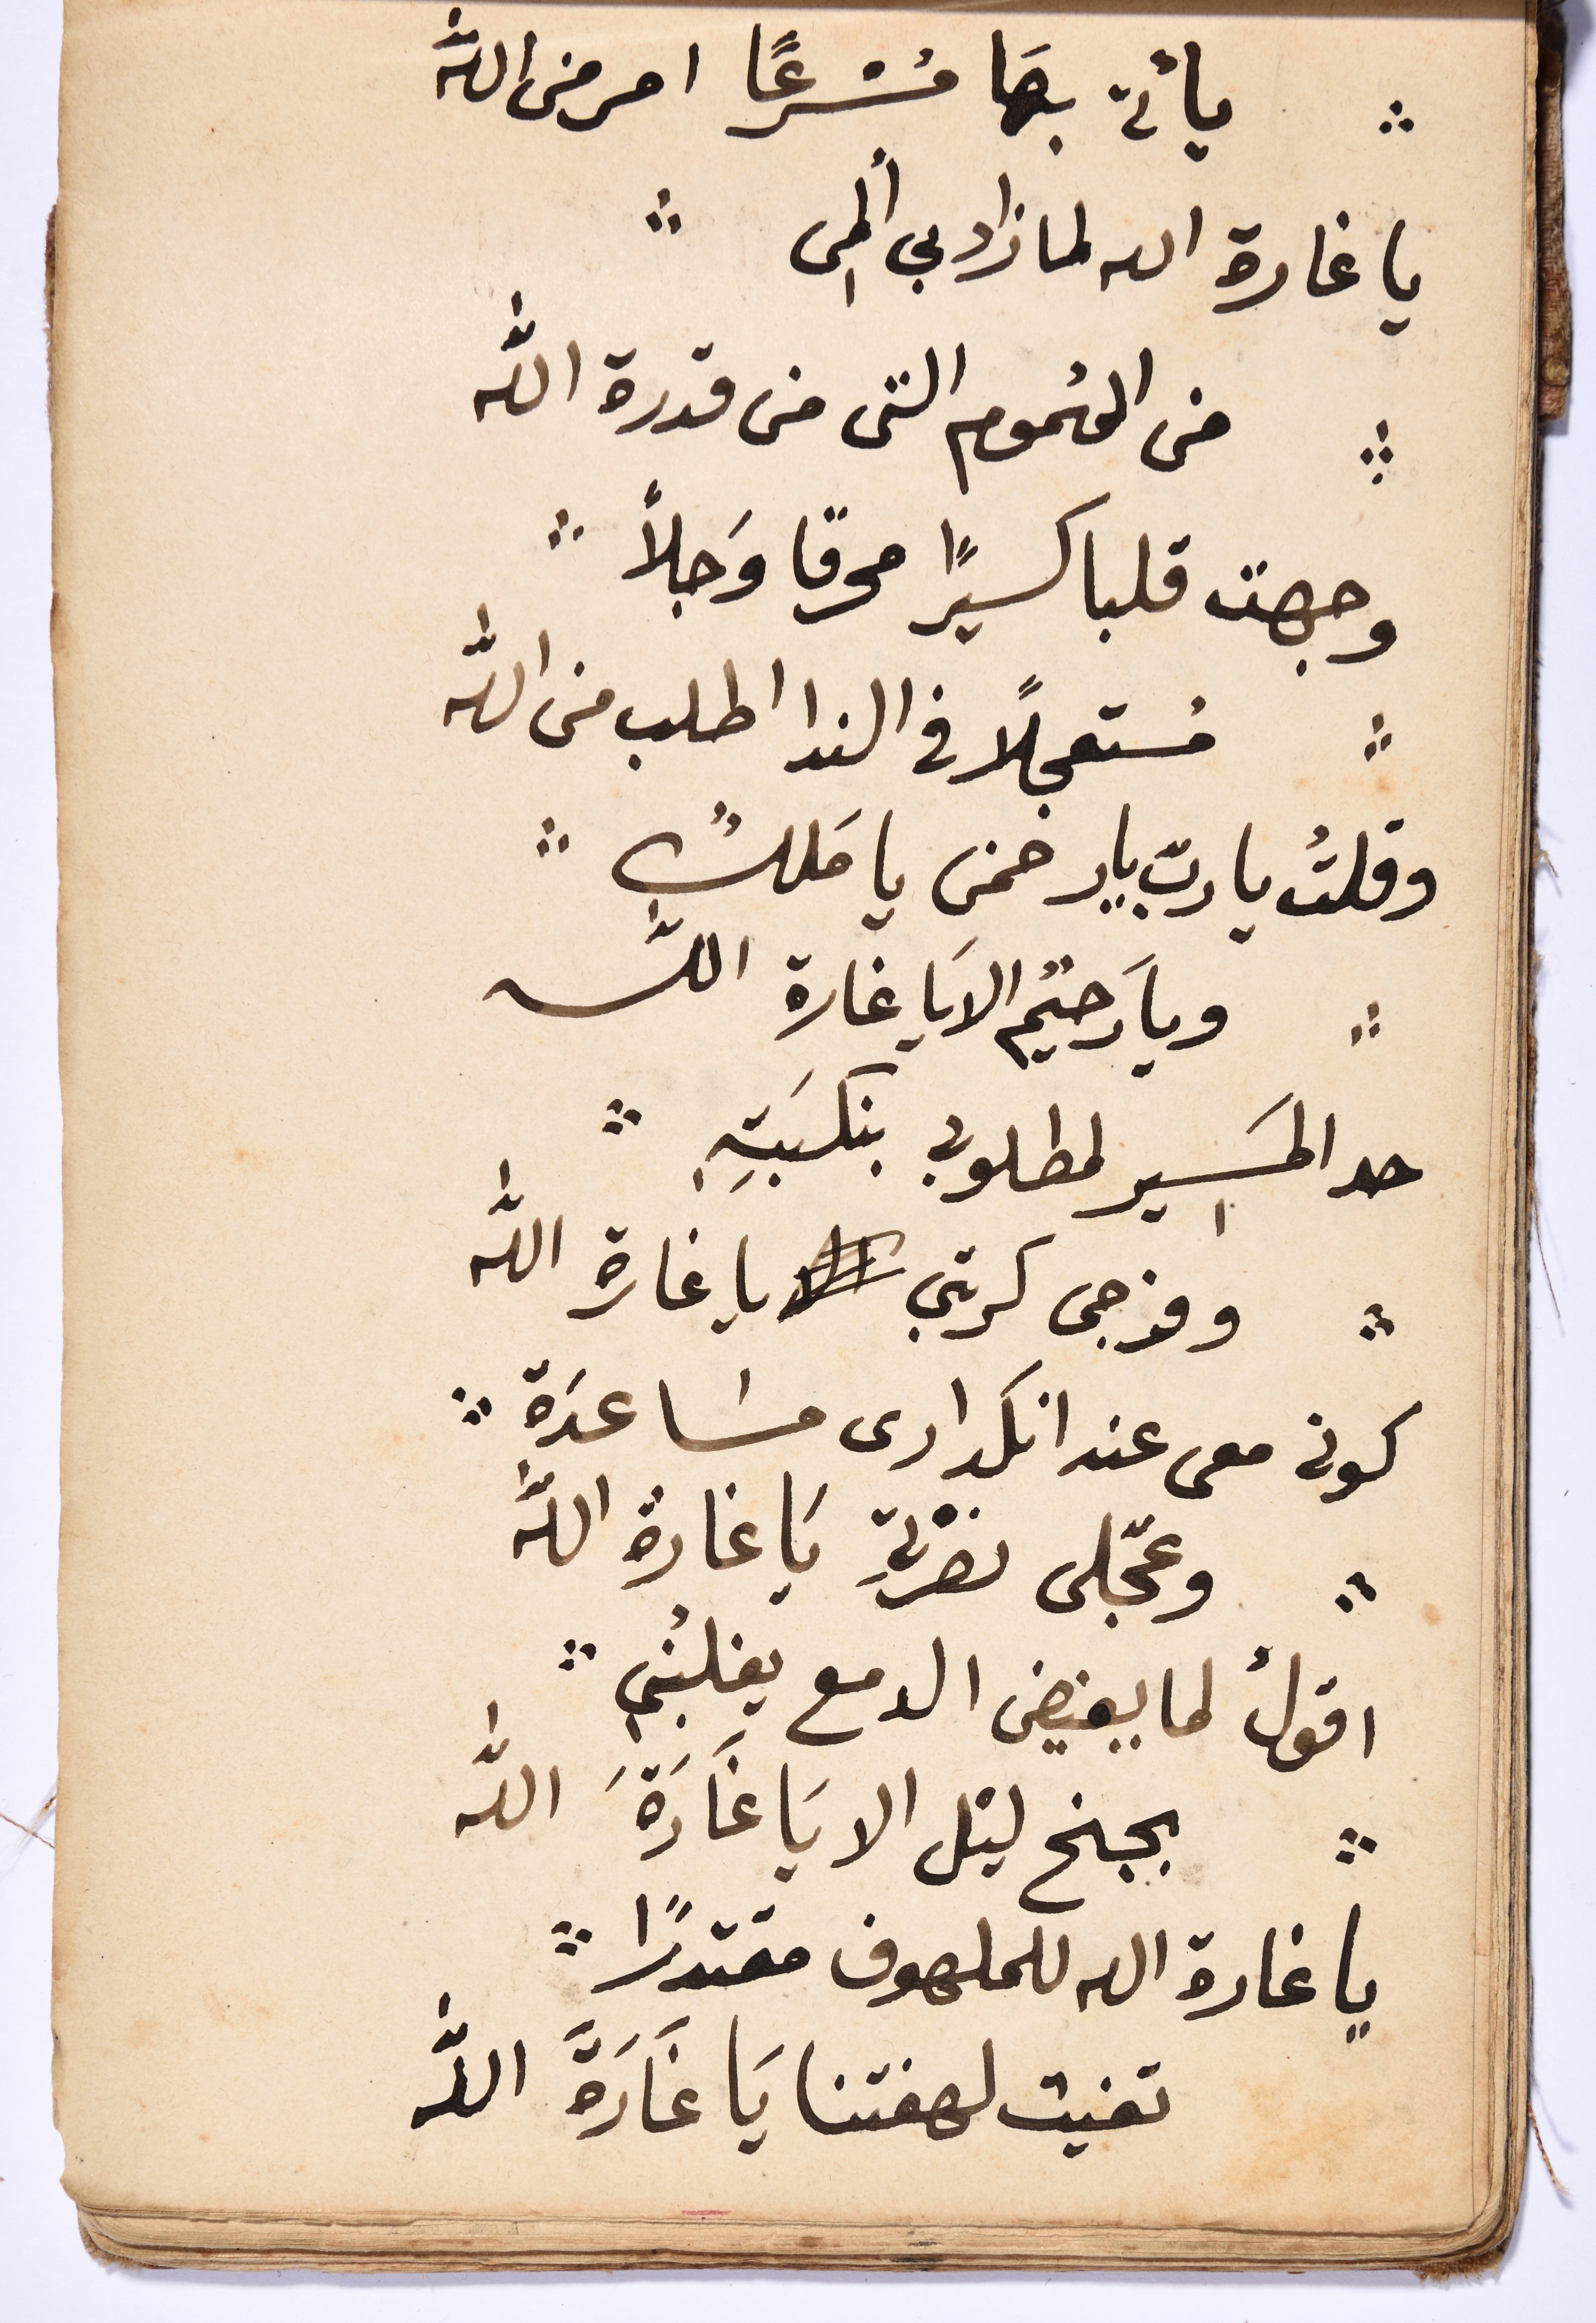 يأتي بهَا مُسْرعًا امر من الله
يا غارة الله لما زاد بي ألمى
من الهُموم التى من قدرة الله
وجهت قلبا كسيرًا محرقا وَجلاً
مُستعجلًا في الندا اطلب من الله
وقلتُ يا ربّ يا رحمن يا مَلكُ
ويا رَحيُم الا يَا غارة الله
حد المَسير لمطلوبي بنكبَتِهِ
وفرجى كربتي يا غارة الله
كونى معى عند انكدارى مسَاعدَة
وعجّلى نصْرتِي يَا غارة الله
اقولُ لما يفيض الدمع يغلبُني
بجنح ليْل الا يَا غَارَةَ الله
يا غارة الله للملهوف مقتدرًا
تغيث لهفتنا يَا غَارَةَ الله